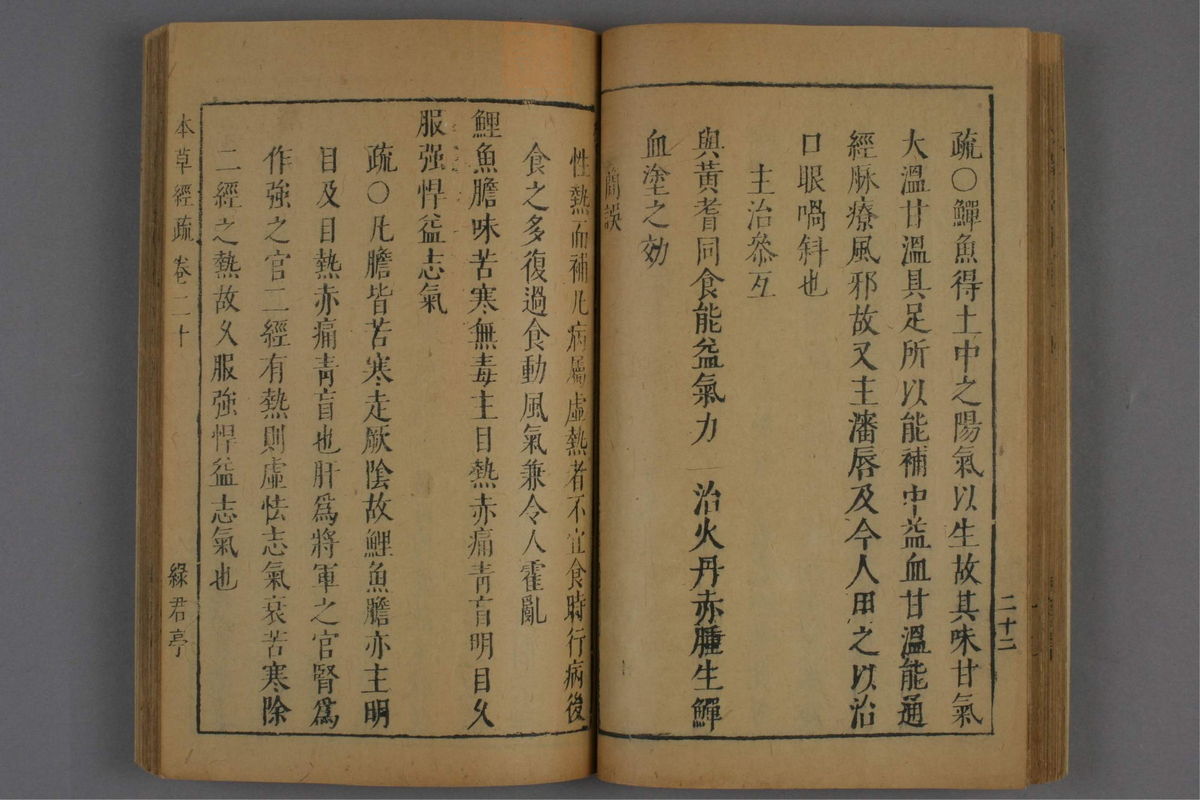 疏○鱓魚得土中之陽氣以生故其味甘氣
大溫甘溫具足所以能補中益血甘溫能通
經脉療風邪故又主瀋唇及今人用之以治
口眼喎斜也
主治參互
與黃耆同食能益氣力 治火丹赤腫生鱓
血塗之効
簡誤
二十二
性熱而補凡病屬虛熱者不宜食時行病後
食之多復過食動風氣兼令人霍亂
鯉魚膽味苦寒無毒主目熱赤痛青盲明目久
服强悍益志氣
疏○凡膽皆苦寒走厥隂故鯉魚膽亦主明
目及目熱赤痛青盲也肝爲將軍之官腎爲
作強之官二經有熱則虛怯志氣衰苦寒除
二經之熱故久服強悍益志氣也
本草經疏 卷二十 綠君亭